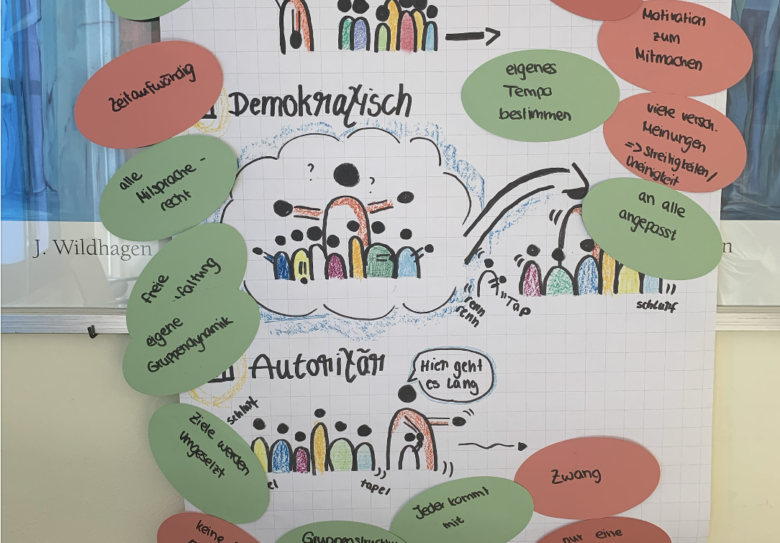 Motivation
zum
Mitmachen
Zeitaufwändig
Demokratisch
eigenes
Tempo
bestimmen
viele versch.
Meinungen
=> Streitigkeiten/
Uneinigkeit
alle
Mitsprache-
recht
? ?
an alle
angepasst
J. Wildhagen
n
freie
faltung
eigene
Gruppendynamik
renn
renn
"Tap
schlurf
Autoritär
Hier geht
es lang
schlurf
Ziele werden
Umgesetzt
tapel
Zwang
Jeder kommt
mit
keine
nur eine